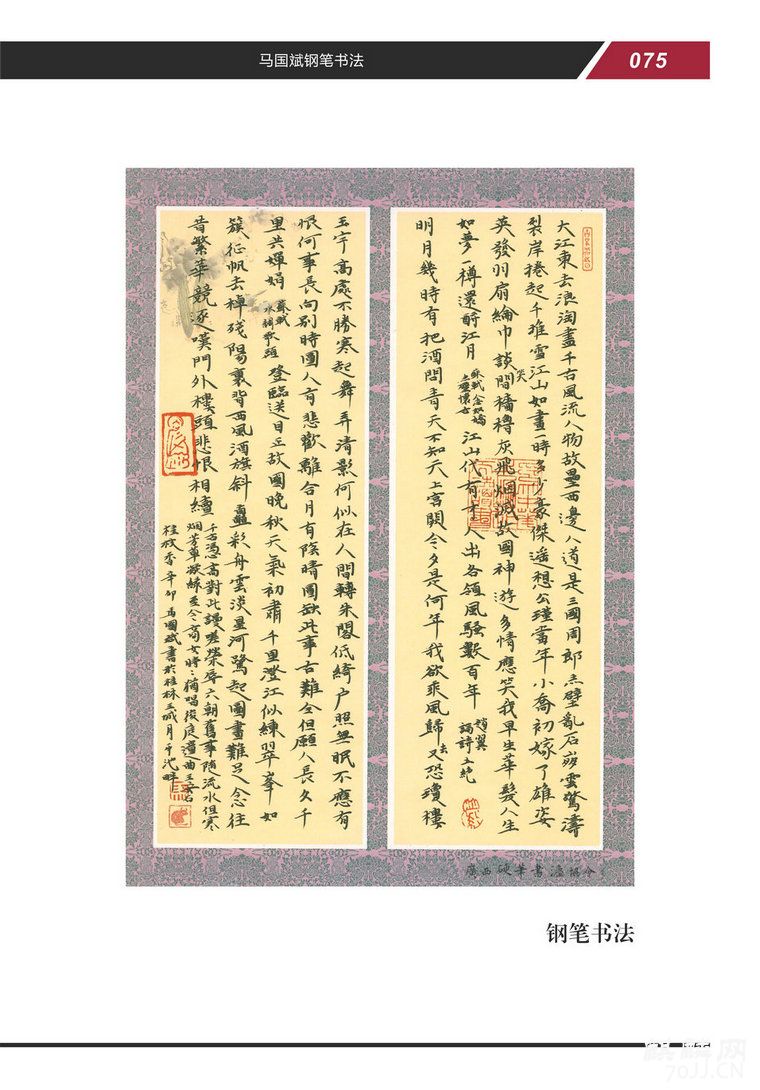 马国斌钢笔书法
075
大江東去浪淘盡千古風流人物故壘西邊人道是三國周郎赤壁亂石崩雲驚濤
裂岸捲起千堆雪江山如畫一時多少豪傑遙想公瑾當年小喬初嫁了雄姿
英發羽扇綸巾談笑間檣櫓灰飛烟滅故國神遊多情應笑我早生華髮人生
如夢一樽還酹江月 蘇軾念奴嬌赤壁懷古 江山代有才人出各領風騷數百年 趙翼論詩五絕
明月幾時有把酒問青天不知天上宮闕今夕是何年我欲乘風歸去又恐瓊樓
玉宇高處不勝寒起舞弄清影何似在人間轉朱閣低綺户照無眠不應有
恨何事長向別時圓人有悲歡離合月有陰晴圓缺此事古難全但願人長久千
里共嬋娟 蘇軾水調歌頭 登臨送目正故國晚秋天氣初肅千里澄江似練翠峯如
簇征帆去棹殘陽裏背西風酒旗斜矗彩舟雲淡星河鷺起圖畫難足念往
昔繁華競逐嘆門外樓頭悲恨相續 千古憑高對此謾嗟榮辱六朝舊事隨流水但寒
烟芳草凝綠至今商女時〻猶唱後庭遺曲王安石
桂枝香辛卯馬國斌書於桂林王城月牙池畔
廣西硬筆書法協會
钢笔书法
70JJ.CN